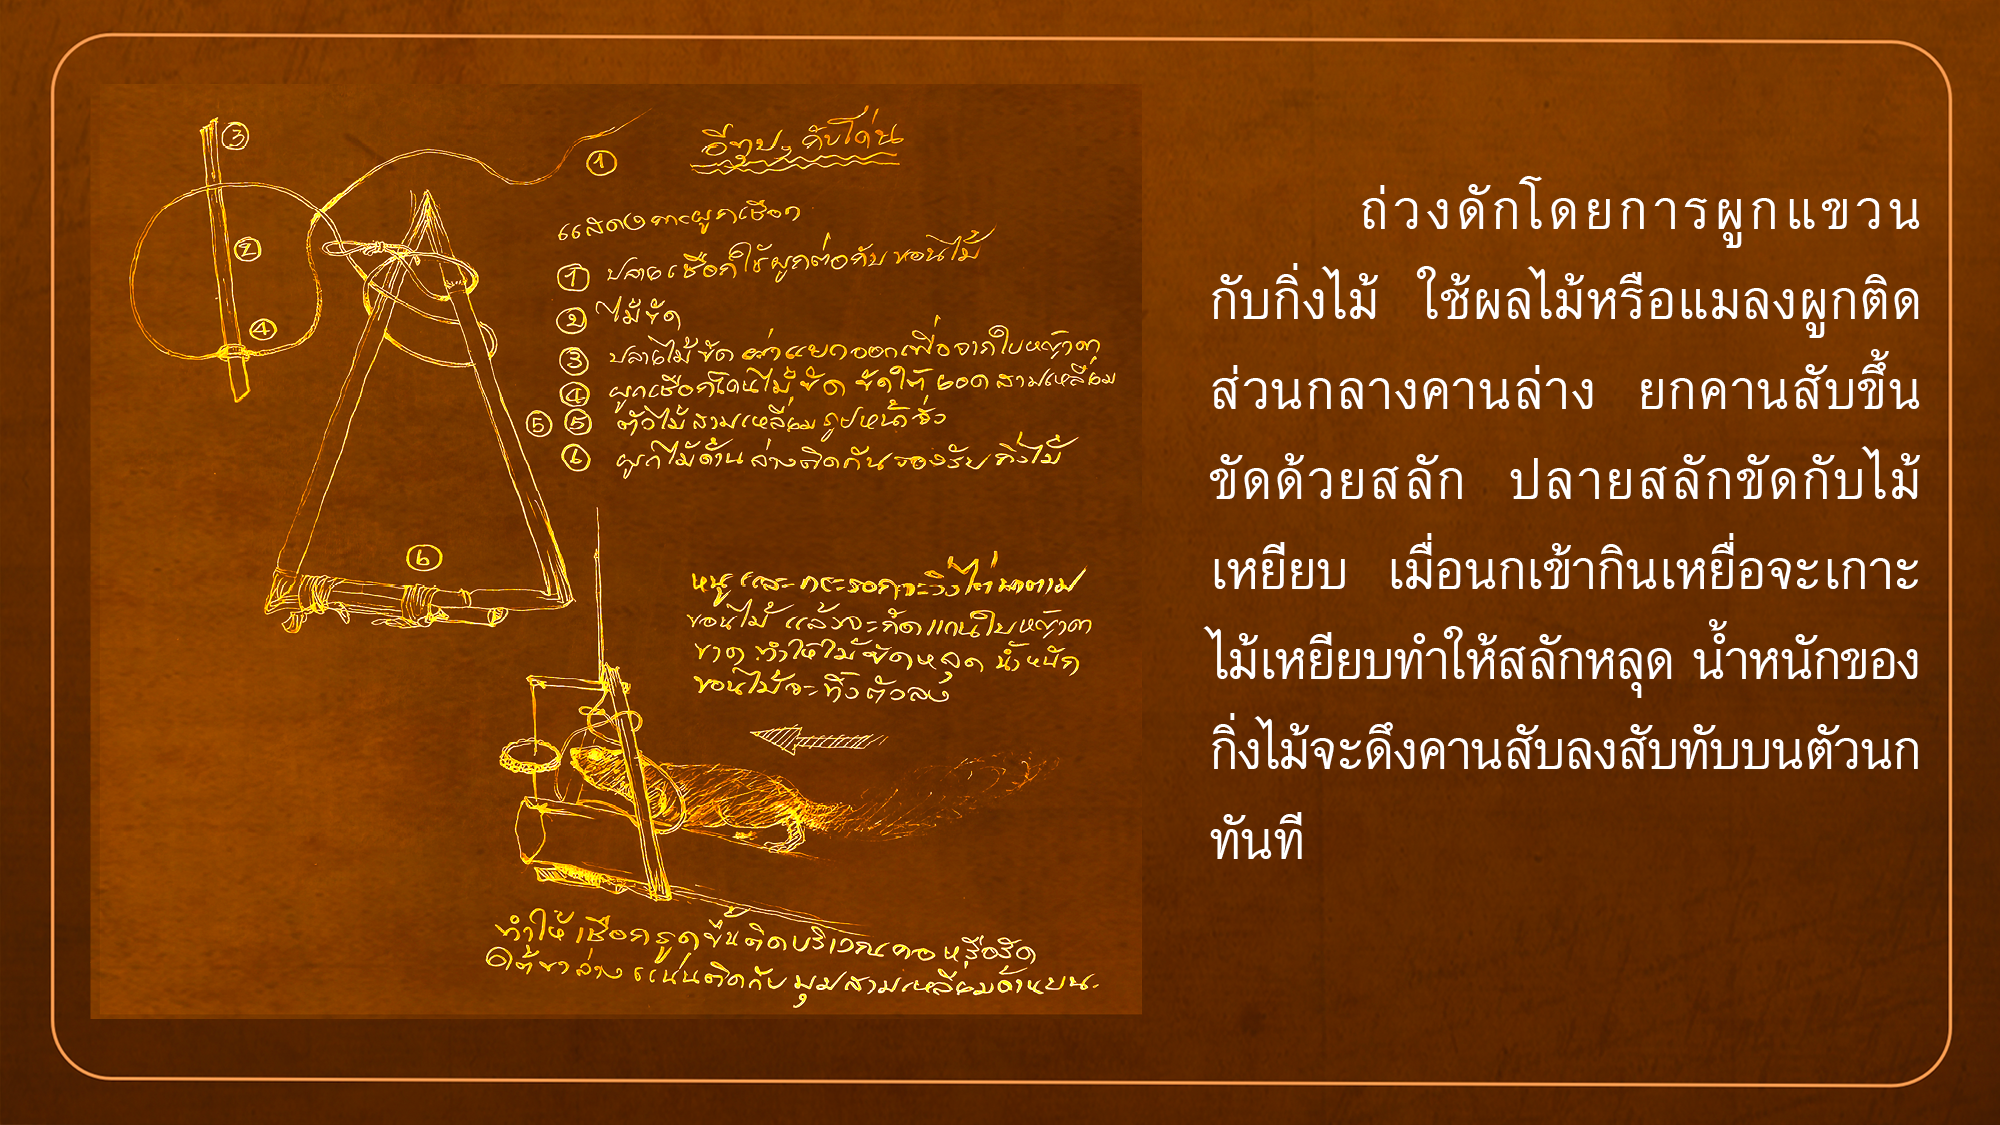 อีทุบ, กับโด่น
แสดงการผูกเชือก
① ปลายเชือกใช้ผูกต่อกับขอนไม้
② ไม้ขัด
③ ปลายไม้ขัด ผ่าแยกออกเพื่อจากใบหญ้าคา
④ ผูกเชือกโคนไม้ขัด ขัดให้ยอดสามเหลี่ยม
⑤ ⑤ ตัวไม้สามเหลี่ยมรูปหน้าจั่ว
⑥ ผูกไม้ด้านล่างติดกันรองรับกิ่งไม้
③
①
②
④
⑥
หนูและกระรอกจะวิ่งไต่มาตาม
ขอนไม้ แล้วจะกัดแทนใบหญ้าคา
ขาด ทำให้ไม้ขัดหลุด น้ำหนัก
ขอนไม้จะทิ้งตัวลง
ทำให้เชือกรูดขึ้นติดบริเวณคอ หรือรัด
ใต้ขาล่างแน่นติดกับมุมสามเหลี่ยมด้านบน
ถ่วงดักโดยการผูกแขวน
กับกิ่งไม้ ใช้ผลไม้หรือแมลงผูกติด
ส่วนกลางคานล่าง ยกคานสับขึ้น
ขัดด้วยสลัก ปลายสลักขัดกับไม้
เหยียบ เมื่อนกเข้ากินเหยื่อจะเกาะ
ไม้เหยียบทำให้สลักหลุด น้ำหนักของ
กิ่งไม้จะดึงคานสับลงสับทับบนตัวนก
ทันที